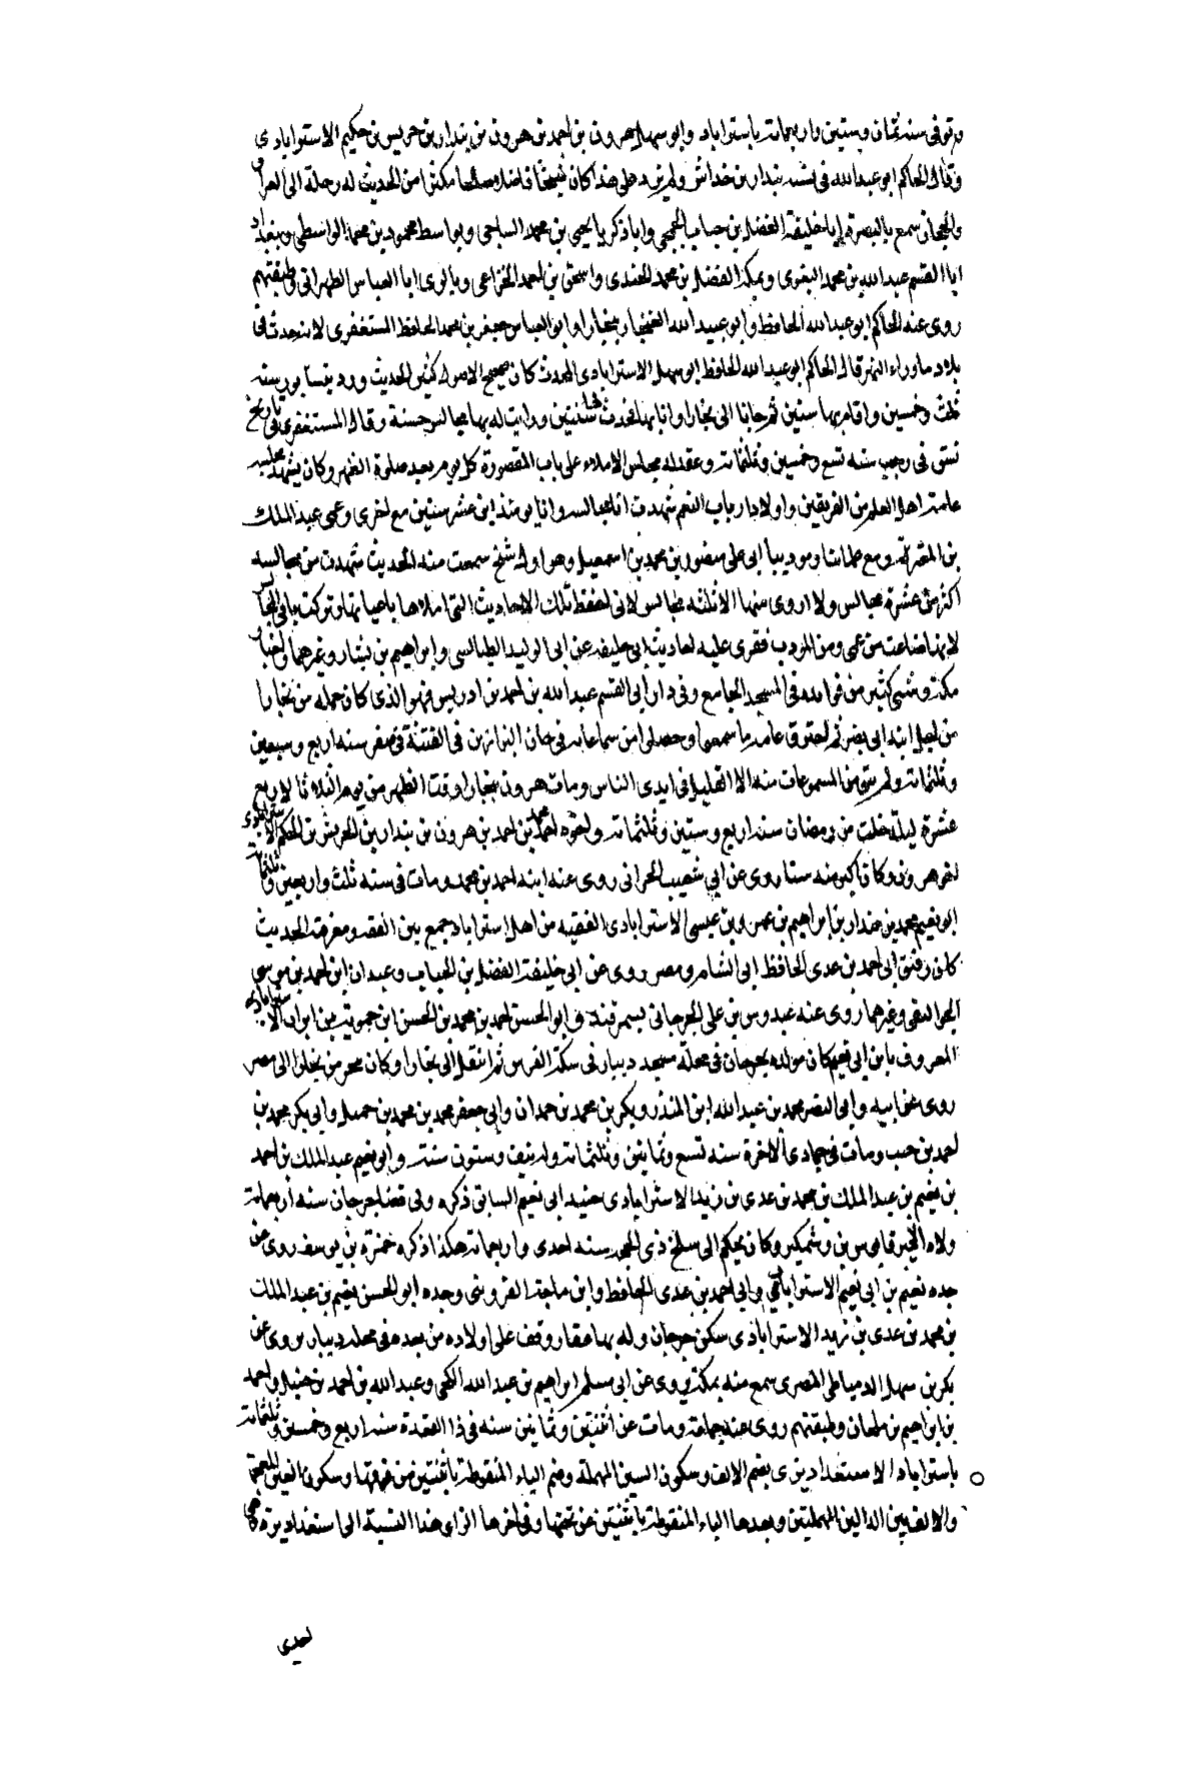 وتوفى سنة ثمان وستين واربعمائة باستراباد وابو سهل هرون بن احمد بن هرون بن بندار بن حريس بن حكيم الاستراباذى
وقال الحاكم ابو عبد الله فى نسبه بندار بن خداش ولم يزد على هذا كان شيخا فاضلا صالحا مكثرا من الحديث له رحلة الى العراق
والحجاز سمع بالبصرة ابا خليفة الفضل بن حباب الجمحى وابا ذكريا يحيى بن محمد الساجى وبواسط محمود بن محمد الواسطى وببغداد
ابا القسم عبد الله بن محمد البغوى وبمكة الفضل بن محمد الجندى واسحق بن احمد الخزاعى وبالرى ابا العباس الطهرانى وطبقتهم
روى عنه الحاكم ابو عبد الله الحافظ وابو عبد الله الغنجار ببخارا وابو العباس جعفر بن محمد الحافظ المستغفرى لانه حدث فى
بلاد ما وراء النهر قال الحاكم ابو عبد الله الحافظ ابو سهل الاستراباذى المحدث كان صحيح الاصول كثير الحديث ورد نيسابور سنة
ثلث وخمسين واقام بها سنتين ثم جانا الى بخارا وانا بها فحدث بها سنتين ورايت له بها مجالس حسنة وقال المستغفرى فى تاريخ
نسف فى رجب سنة تسع وخمسين وثلثمائة وعقد له مجلس الاملاء على باب المقصورة كل يوم بعد صلوة الظهر وكان يشهد مجلسه
عامة اهل العلم من الفريقين واولاد ارباب النعم شهدت انا مجالسه وانا يومئذ ابن عشر سنين مع اخرى وعمى عبد الملك
بن المعتز ومع ومودبنا ابى على منصور بن محمد بن اسمعيل وهو اول شيخ سمعت منه الحديث شهدت من مجالسه
اكثر من عشرة مجالس ولا اروى منها الا ثلثة مجالس لانى احفظ تلك الاحاديث التى املاها باعيانها وتركت باقى المجالس
لانها ضاعت من عمى ومن المودب فقرى عليه احاديث ابى خليفة عن ابى الوليد الطيالسى وابراهيم بن بشار وغيرهما واخبار
مكة وشى كثير من فوايده فى المسجد الجامع وفى دار ابى القسم عبد الله بن احمد بن ادريس فهو الذى كان حمله من بخارا
من اجل ابنه ابى نصر ثم احترق عامة ما سمعوا وحصلوا من سماعاته فى خان البزازين فى الفتنة فى صفر سنة اربع وسبعين
وثلثمائة ولم يبق من المسموعات منه الا القليل فى ايدى الناس ومات هرون ببخارا وقت الظهر من يوم الثلاثا لاربع
عشرة ليلة خلت من رمضان سنة اربع وستين وثلثمائة واخوه احمد بن احمد بن هرون بن بندار بن الحريش بن الحكم الاستراباذى
اخو هرون وكان اكبر منه سنا روى عن ابى شعيب الحرانى روى عنه ابنه احمد بن محمد ومات فى سنة ثلث واربعين وثلثمائة
ابو نعيم محمد بن بندار بن ابراهيم بن عيسى الاستراباذى الفقيه من اهل استراباد جمع بين الفقه ومعرفة الحديث
كان رفيق ابى احمد بن عدى الحافظ الى الشام ومصر روى عن ابى خليفة الفضل بن الحباب وعبدان ابن احمد بن موسى
الجواليقى وغيرهما روى عنه عبدوس بن على الجرجانى بسمرقند وابو الحسن احمد بن محمد بن الحسن ابن حمويه بن ابوان الاستراباذى
المعروف بابن ابى نعيم كان مولده بجرجان فى محلة مسجد دينار فى سكة الفرس ثم انتقل الى بخارا وكان يتجر من بخارا الى مصر
روى عن ابيه وابى النضر محمد بن عبد الله ابن المنذر وبكر بن محمد بن حمدان وابى جعفر محمد بن محمد بن جميل وابى بكر محمد بن
احمد بن خنب ومات فى جمادى الاخرة سنة تسع وثمانين وثلثمائة وله نيف وستون سنة وابو نعيم عبد الملك بن احمد
بن نعيم بن عبد الملك بن محمد بن عدى بن زيد الاستراباذى حفيد ابى نعيم السابق ذكره ولى قضا جرجان سنة اربعمائة
ولاه الامير قابوس بن وشمكير وكان يحكم الى سلخ ذى الحجة سنة احدى واربعمائة هكذا ذكره حمزة بن يوسف روى عن
جده نعيم بن ابى نعيم الاستراباذى وابى احمد بن عدى الحافظ وابن ماجة القزوينى وجده ابو الحسن نعيم بن عبد الملك
بن محمد بن عدى بن زيد الاستراباذى سكن جرجان وله بها عقار وقف على اولاده من بعده فى محلة دينار يروى عن
بكر بن سهل الدمياطى المصرى سمع منه بمكة يروى عن ابى مسلم ابراهيم بن عبد الله الكجى وعبد الله بن احمد بن حنبل واحمد
بن ابراهيم بن ملحان وطبقتهم روى عنه جماعة ومات عن اثنتين وثمانين سنة فى ذا القعدة سنة اربع وخمسين وثلثمائة
باستراباد الاستغداديزى بضم الالف وسكون السين المهملة وضم التاء المنقوطة باثنتين من فوقها وسكون الغين المعجمة
والالف بين الدالين المهملتين وبعدها الياء المنقوطة باثنتين من تحتها وفى اخرها الزاى هذا النسبة الى استغداديزه وهى
احدى